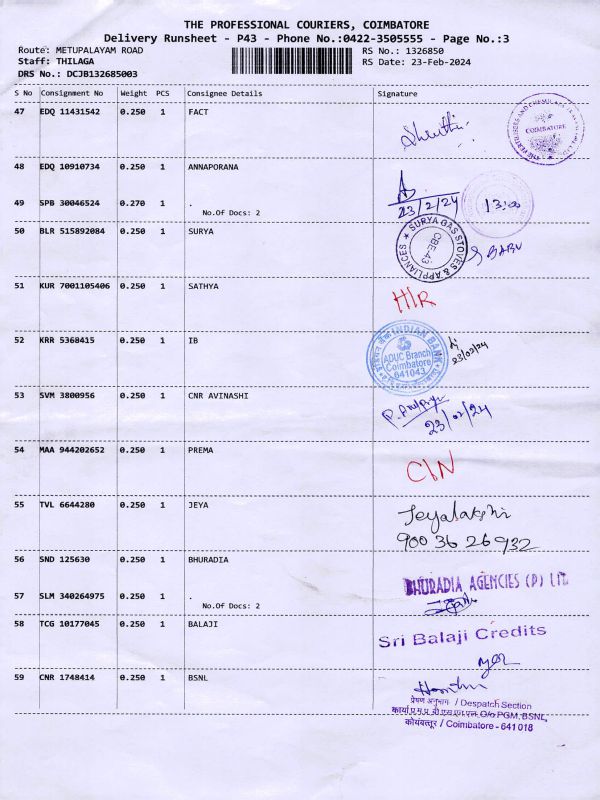 THE PROFESSIONAL COURIERS, COIMBATORE
Delivery Runsheet - P43 - Phone No.:0422-3505555 - Page No.:3
Route: METUPALAYAM ROAD RS No.: 1326850
Staff: THILAGA RS Date: 23-Feb-2024
DRS No.: DCJB132685003
S No Consignment No Weight PCS Consignee Details Signature
47 EDQ 11431542 0.250 1 FACT
COIMBATORE
48 EDQ 10910734 0.250 1 ANNAPORANA
49 SPB 30046524 0.270 1 . 23/2/24 13:00
No.Of Docs: 2
50 BLR 515892084 0.250 1 SURYA
SURYA GAS STOVES & APPLIANCES CBE-43 S BABU
51 KUR 7001105406 0.250 1 SATHYA H/R
52 KRR 5368415 0.250 1 IB
INDIAN BANK
ADUC Branch
Coimbatore
641043
23/02/24
53 SVM 3800956 0.250 1 CNR AVINASHI
23/02/24
54 MAA 944202652 0.250 1 PREMA C/N
55 TVL 6644280 0.250 1 JEYA Jeyalakshi
900 36 26932
56 SND 125630 0.250 1 BHURADIA
BHURADIA AGENCIES (P) LTD
57 SLM 340264975 0.250 1 .
No.Of Docs: 2
58 TCG 10177045 0.250 1 BALAJI Sri Balaji Credits
59 CNR 1748414 0.250 1 BSNL
प्रेषण अनुभाग / Despatch Section
O/o PGM, BSNL,
कोयंबत्तूर / Coimbatore - 641 018